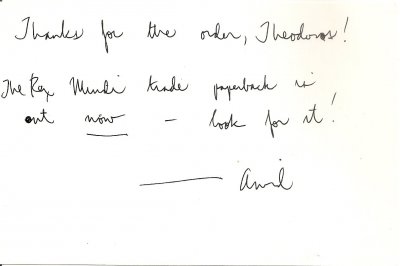 Thanks for the order, Theodoros!
The Rex Mundi trade paperback is
out now — look for it!
— Arvid